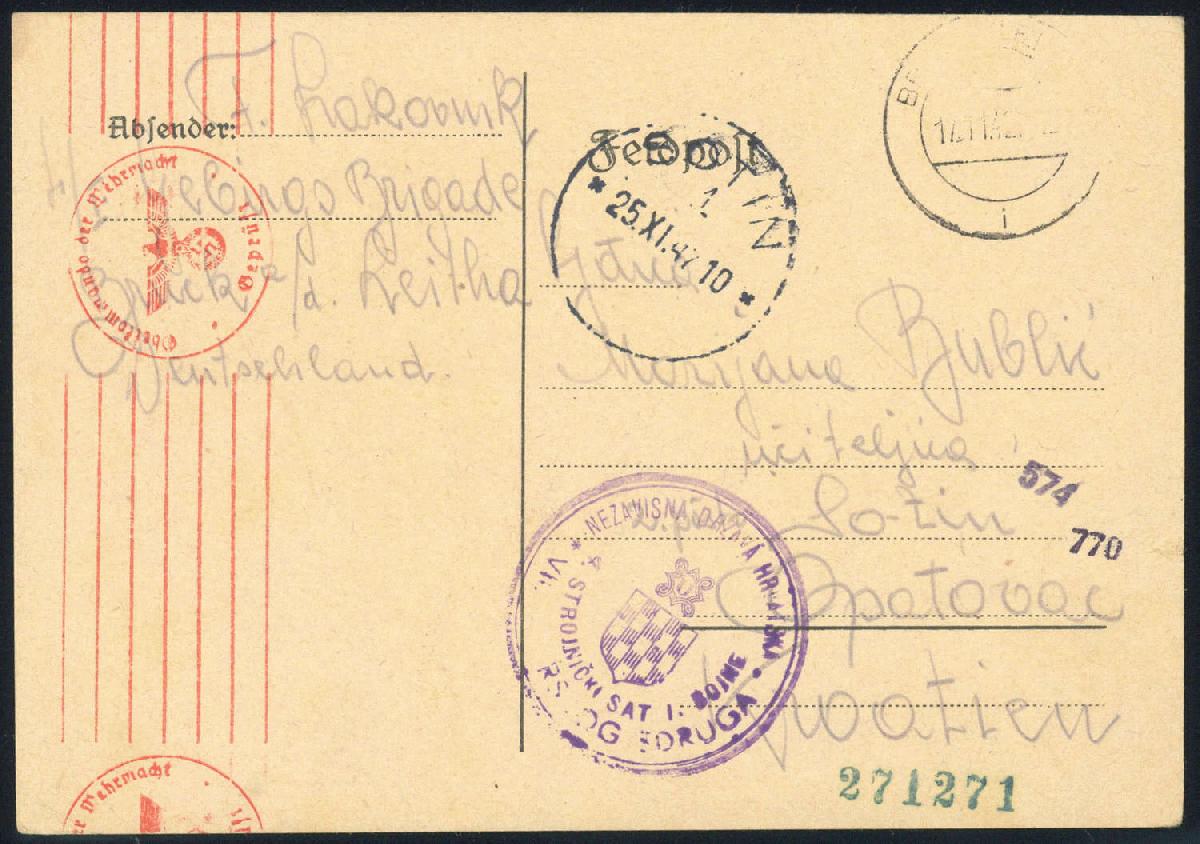 Absender: F. Lrakovnik
Brigade
Bruck a/d. Leitha
Deutschland.
Oberkommando der Wehrmacht
Geprüft
Feldpost
SOTIN
1
25.XI.42 10
i
Marijana Bublić
učiteljica
Sotin
Opatovac
Kroatien
574
770
NEZAVISNA DRŽAVA HRVATSKA
4. STROJNIČKI SAT I. BOJNE
VII.
ZDRUGA
271271
der Wehrmacht